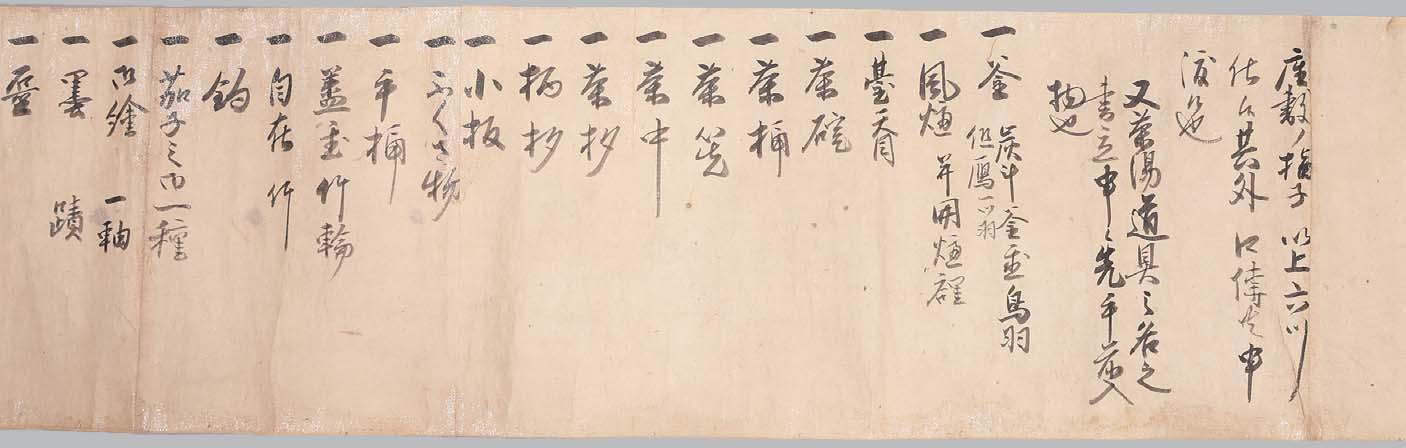 座敷ノ様子 以上六ツ
仕候其外 口傳ニ申
渡也
又茶湯道具之名之
書立申候先手前入
物也
一 釜 炭斗 釜置 鳥羽
但鴈ノ羽
一 風爐 并囲爐裡
一 臺天目
一 茶碗
一 茶桶
一 茶筅
一 茶巾
一 茶杓
一 柄杓
一 小板
一 ふくさ物
一 手桶
一 蓋置竹輪
一 自在 竹
一 釣
一 茄子之内一種
一 御繪 一軸
一 墨蹟
一 壺